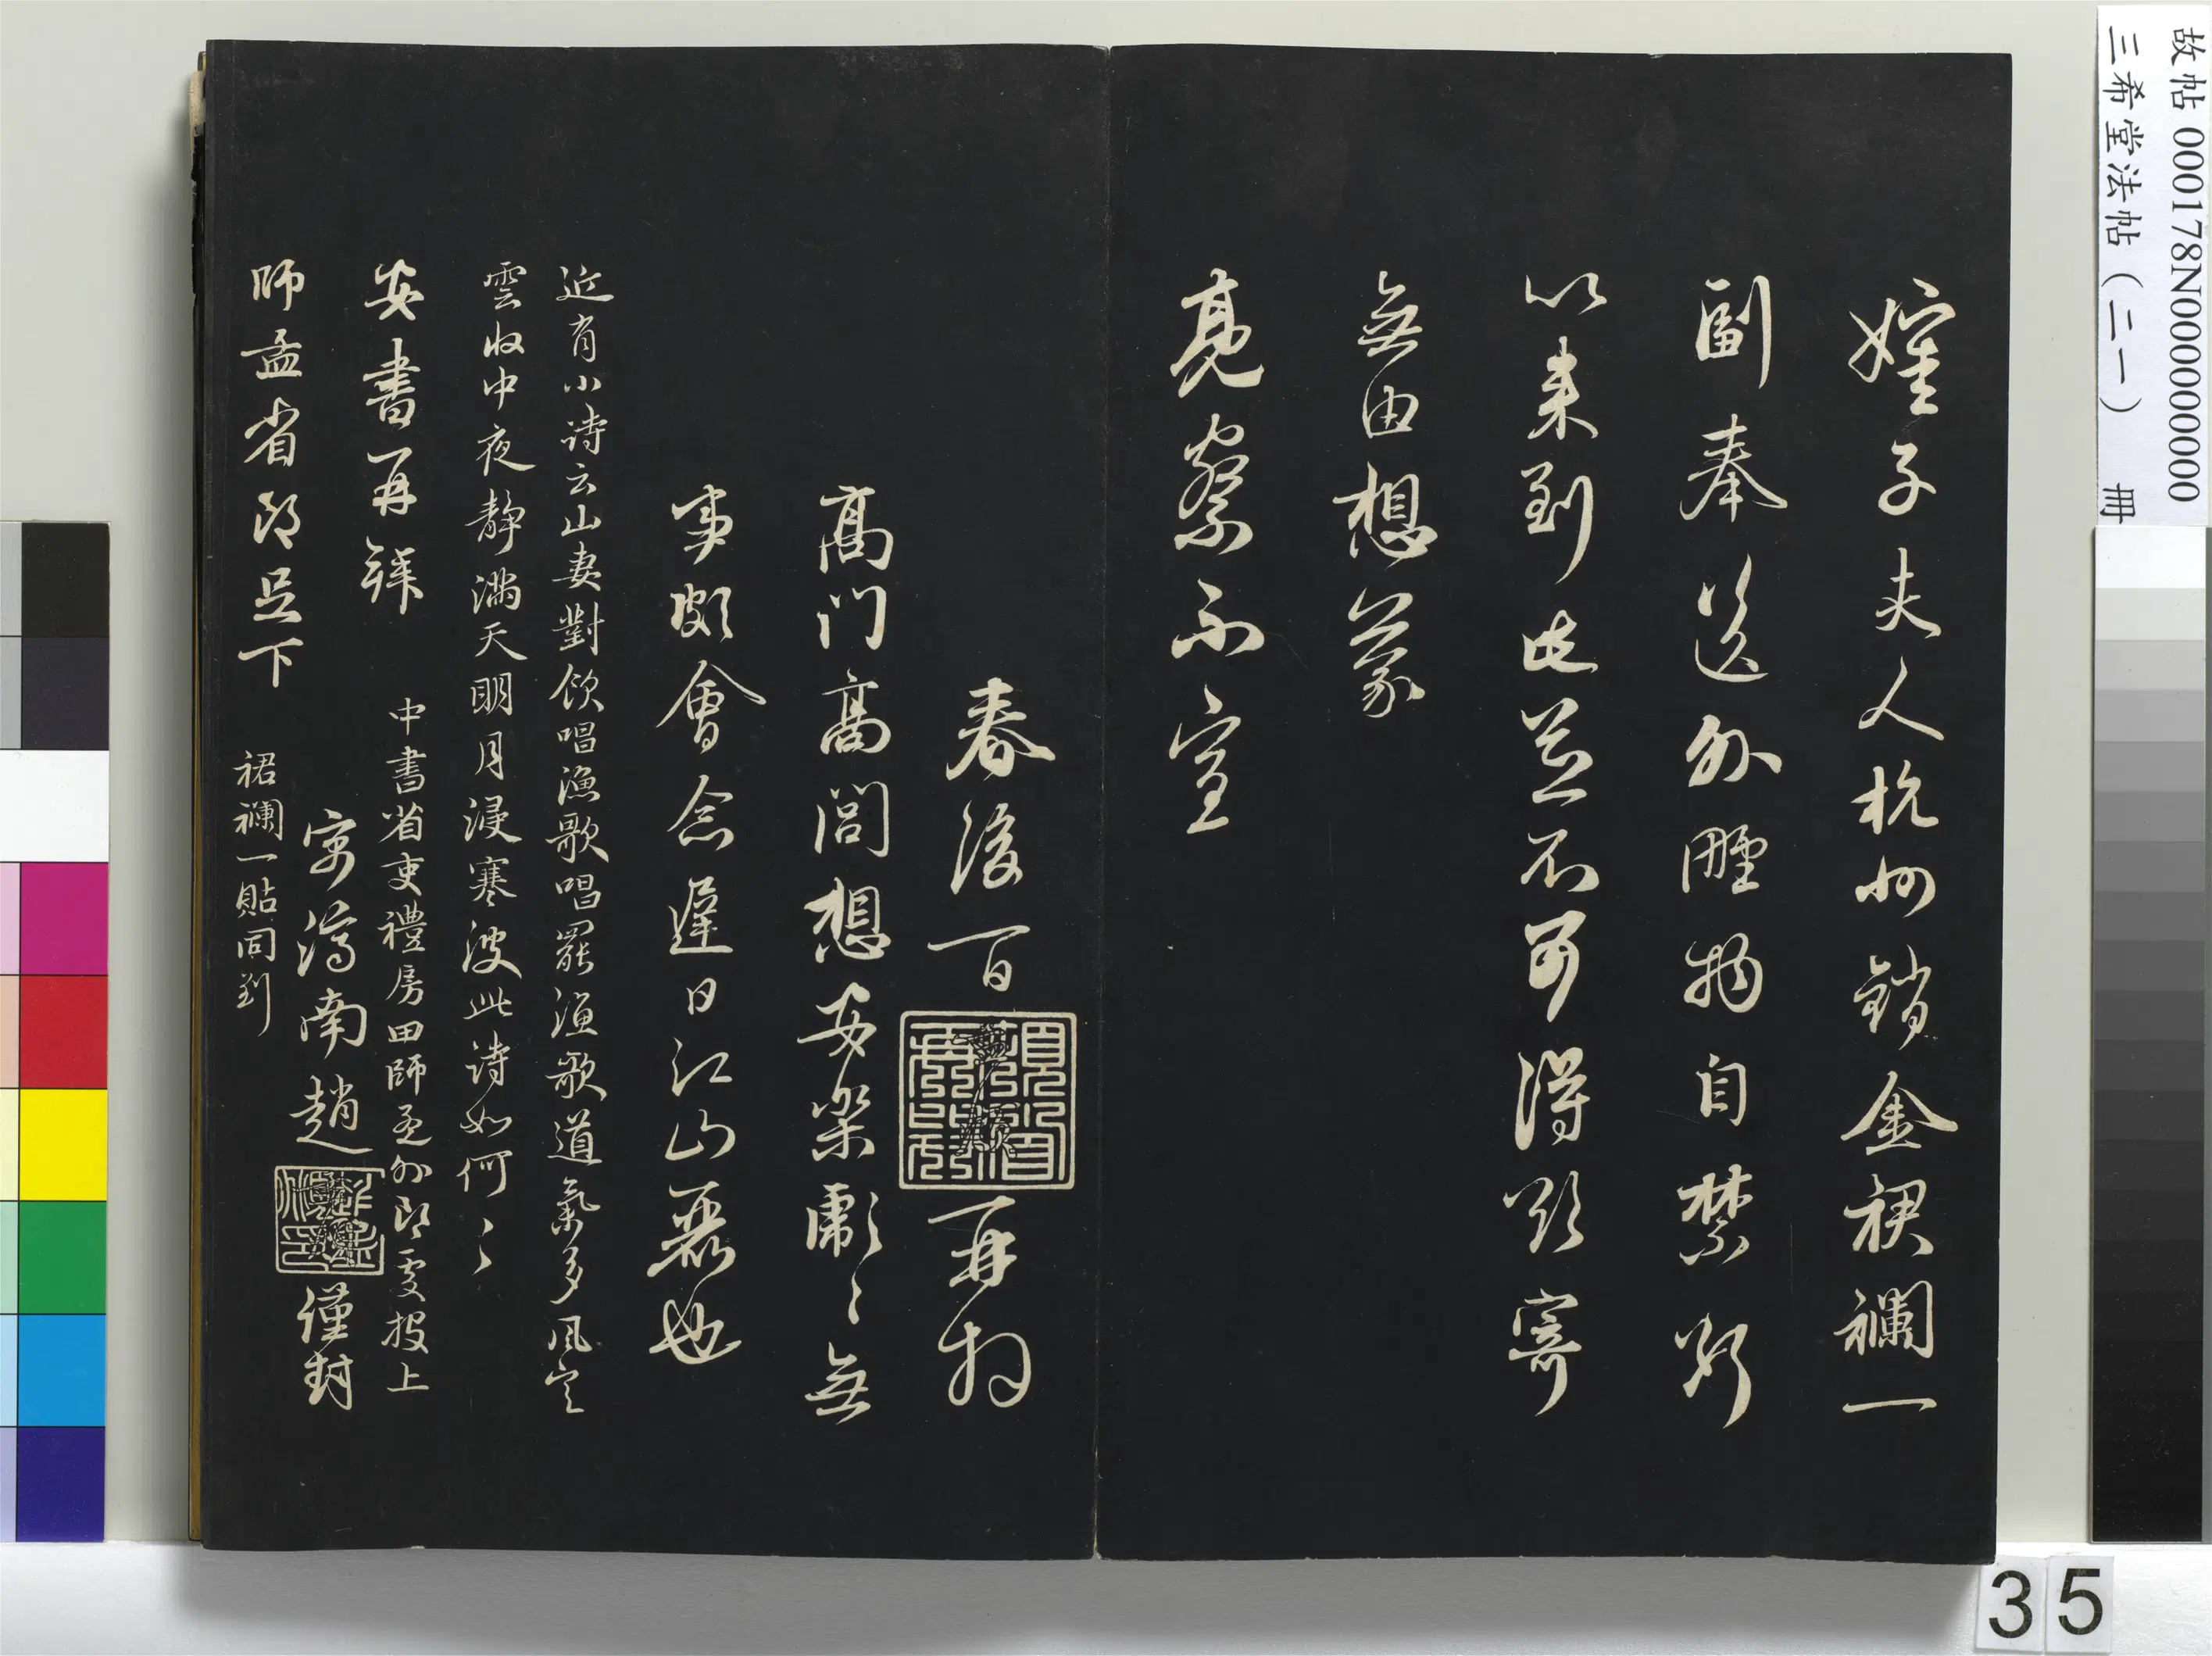 故帖 000178N000000000
三希堂法帖（二一） 冊
子夫人杭州銷金裙襴一
副奉送外雖物自禁斷
以来到此並不可得欲寄
無由想蒙
亮察不宣
春後一百
再拜
高門高閭想安樂彪彪無
事頗會念遲日江山麗也
近有小詩云山妻對飲唱漁歌唱罷漁歌道氣多風定
雲收中夜靜滿天明月浸寒波此詩如何〻
安書再拜
中書省吏禮房田師孟外郎處投上
寓濟南趙
謹封
師孟省郎足下
裙襴一貼同到
35